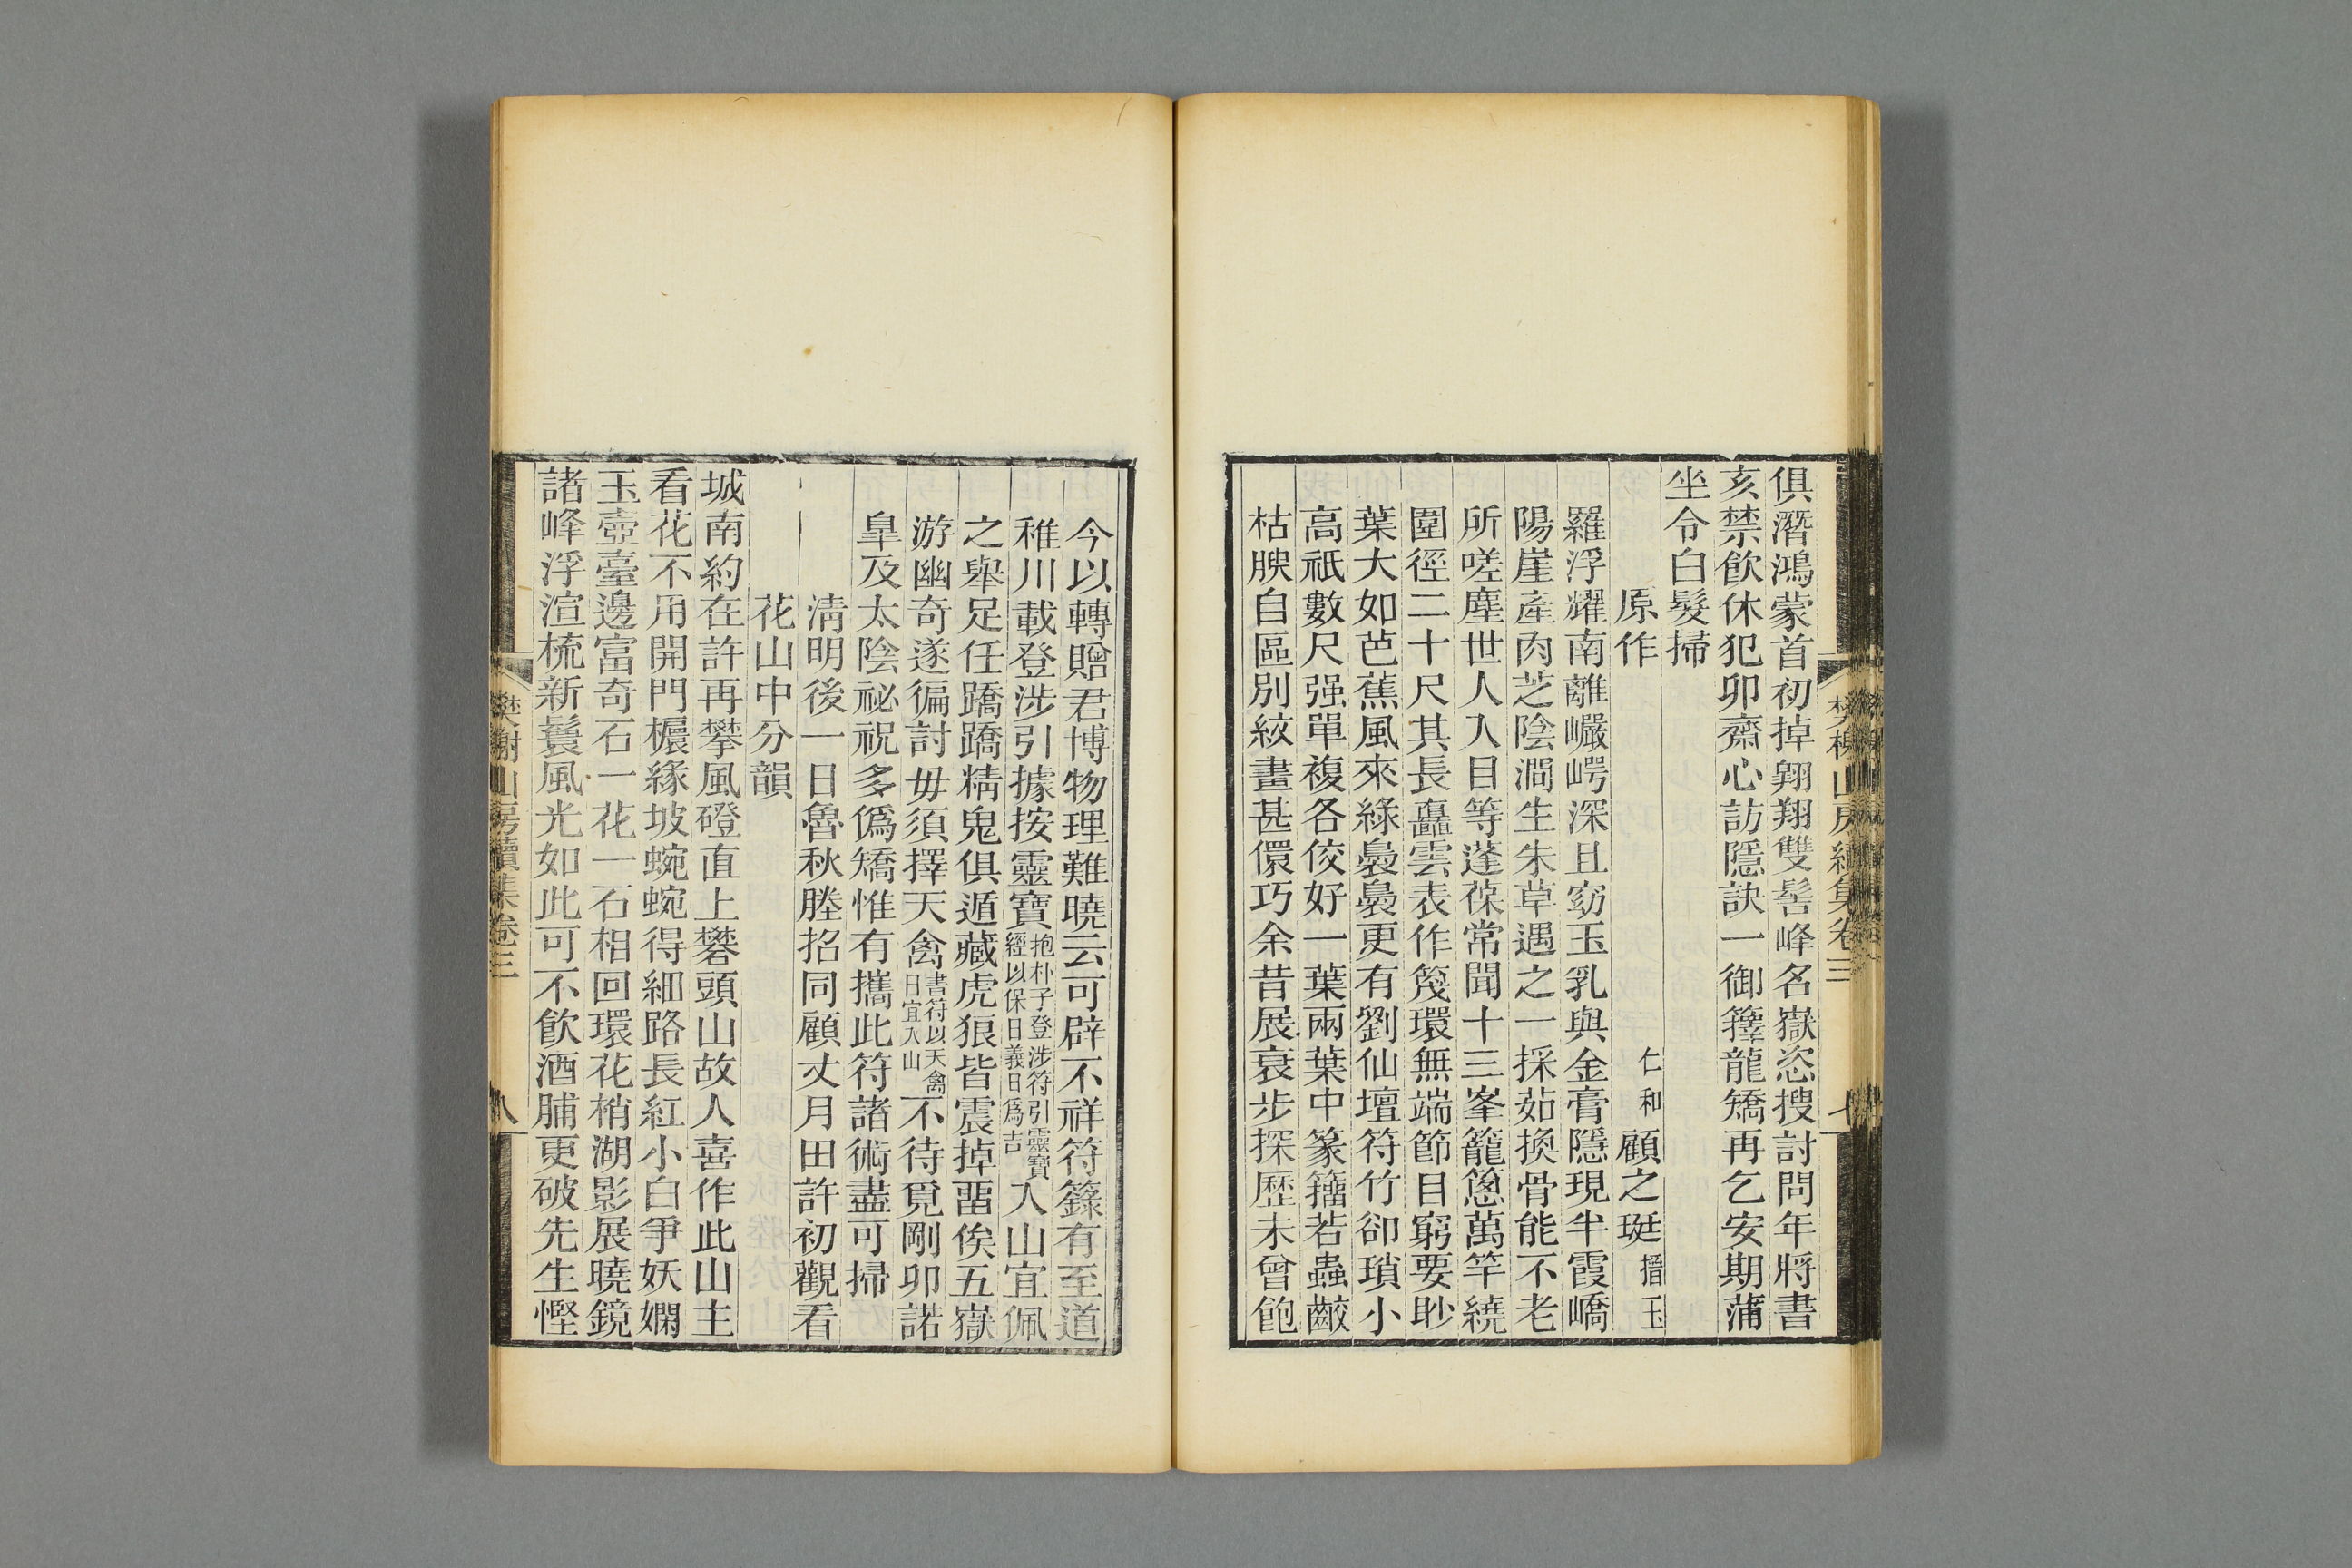 樊榭山房續集卷三
七
俱潛鴻蒙首初掉翱翔雙髻峰名嶽恣搜討問年將書
亥禁飲休犯卯齋心訪隱訣一御籜龍矯再乞安期蒲
坐令白髮掃
原作 仁和 顧之珽 搢玉
羅浮耀南離巘崿深且窈玉乳與金膏隱現半霞嶠
陽崖產肉芝陰澗生朱草遇之一採茹換骨能不老
所嗟塵世人入目等蓬葆常聞十三峯籠蔥萬竿繞
圍徑二十尺其長矗雲表作篾環無端節目窮要眇
葉大如芭蕉風來綠裊裊更有劉仙壇符竹卻瑣小
高祇數尺强單複各佼好一葉兩葉中篆籀若蟲齩
枯腴自區別紋畫甚儇巧余昔展衰步探歷未曾飽
今以轉贈君博物理難曉云可辟不祥符籙有至道
稚川載登涉引據按靈寶抱朴子登涉符引靈寶經以保日義日爲吉入山宜佩
之舉足任蹻蹻精鬼俱遁藏虎狼皆震掉畱俟五嶽
游幽奇遂徧討毋須擇天禽書符以天禽日宜入山不待覓剛卯諾
皐及太陰祕祝多僞矯惟有攜此符諸術盡可掃
清明後一日魯秋塍招同顧丈月田許初觀看
花山中分韻
城南約在許再攀風磴直上礬頭山故人喜作此山主
看花不用開門櫎緣坡蜿蜿得細路長紅小白爭妖嫻
玉壼臺邊富奇石一花一石相回環花梢湖影展曉鏡
諸峰浮渲梳新鬟風光如此可不飲酒脯更破先生慳
樊榭山房續集卷三
八